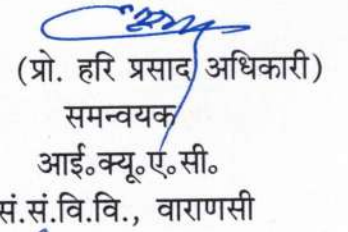 (प्रो. हरि प्रसाद अधिकारी)
समन्वयक
आई०क्यू०ए०सी०
सं.सं.वि.वि., वाराणसी